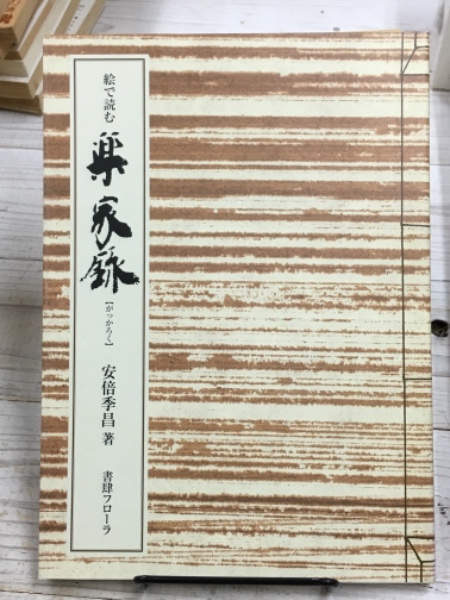 絵で読む
楽家録
【がっかろく】
安倍季昌 著
書肆フローラ